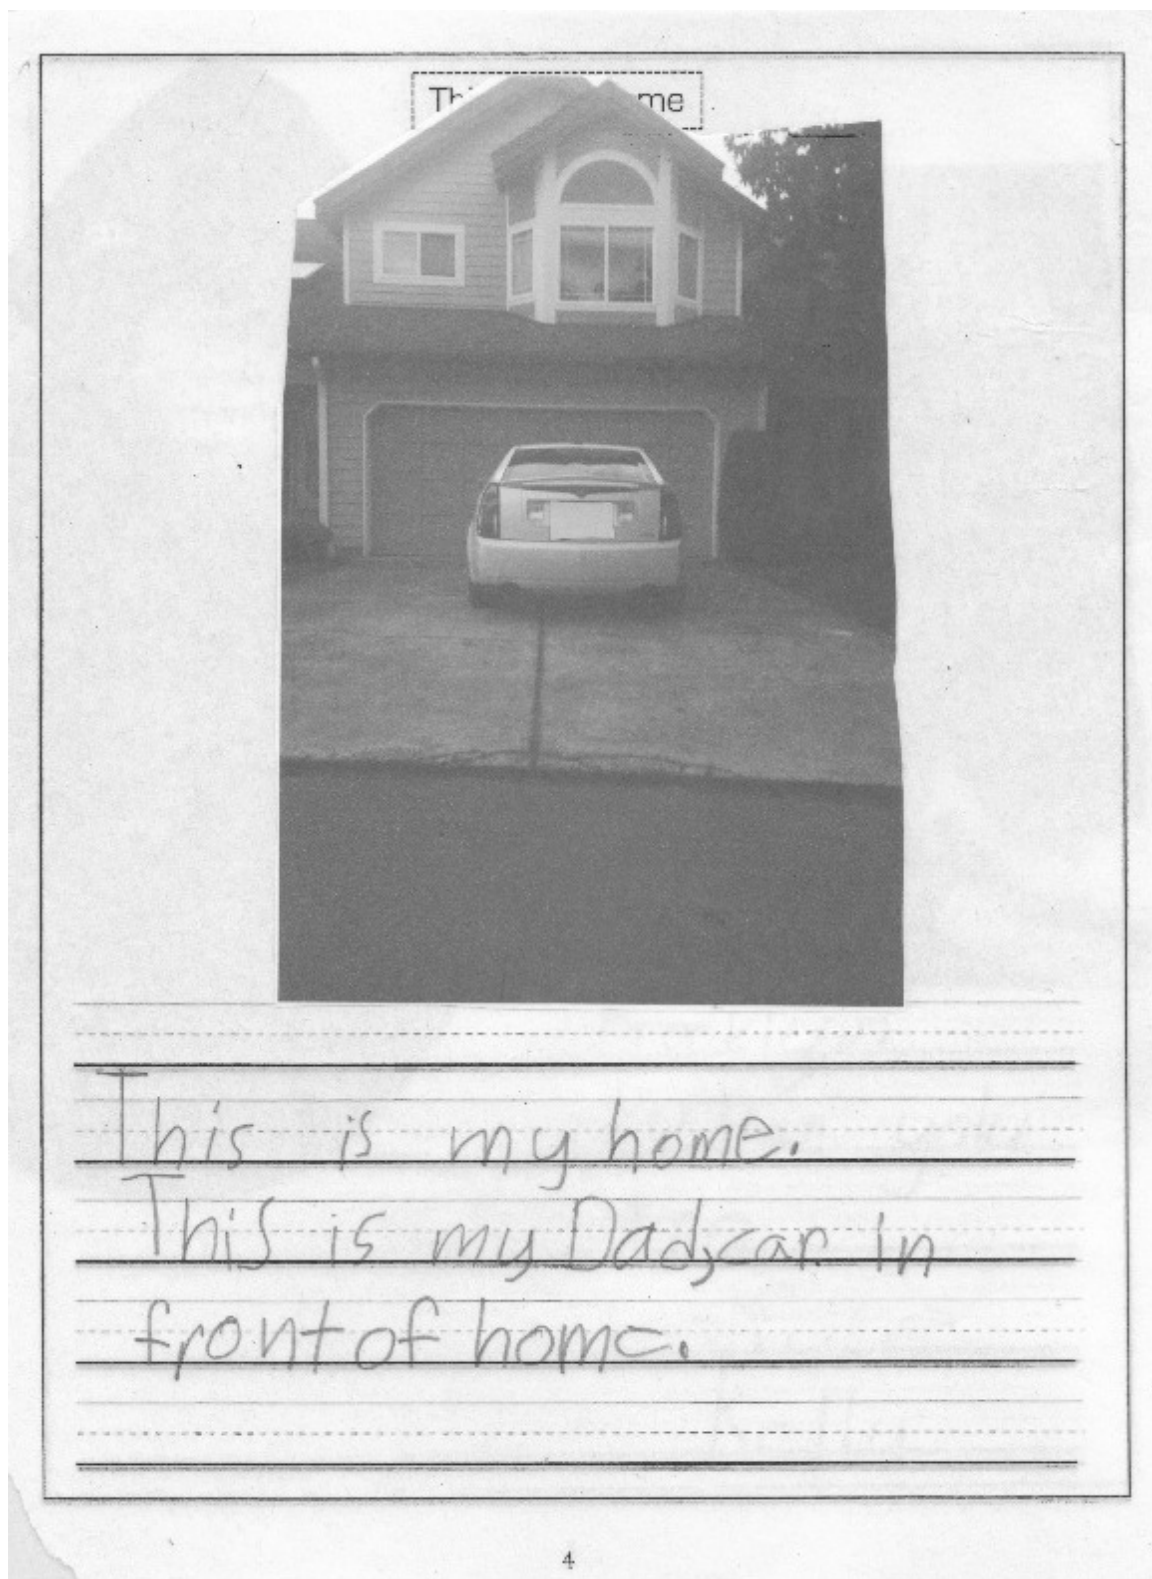 Th me
This is my home.
This is my Dad,car in
front of home.
4